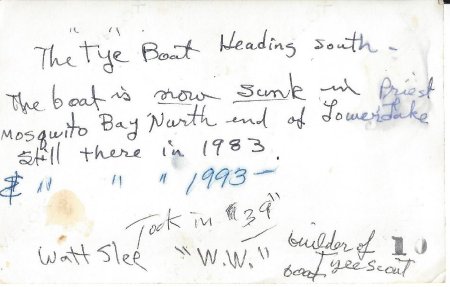 The "Tye" Boat Heading south -
The boat is now sunk in Priest
Mosquito Bay North end of Lower Lake
Still there in 1983.
& " " " 1993 -
Took in "39"
Watt Slee "W.W." builder of 10
boat Tyee Scout